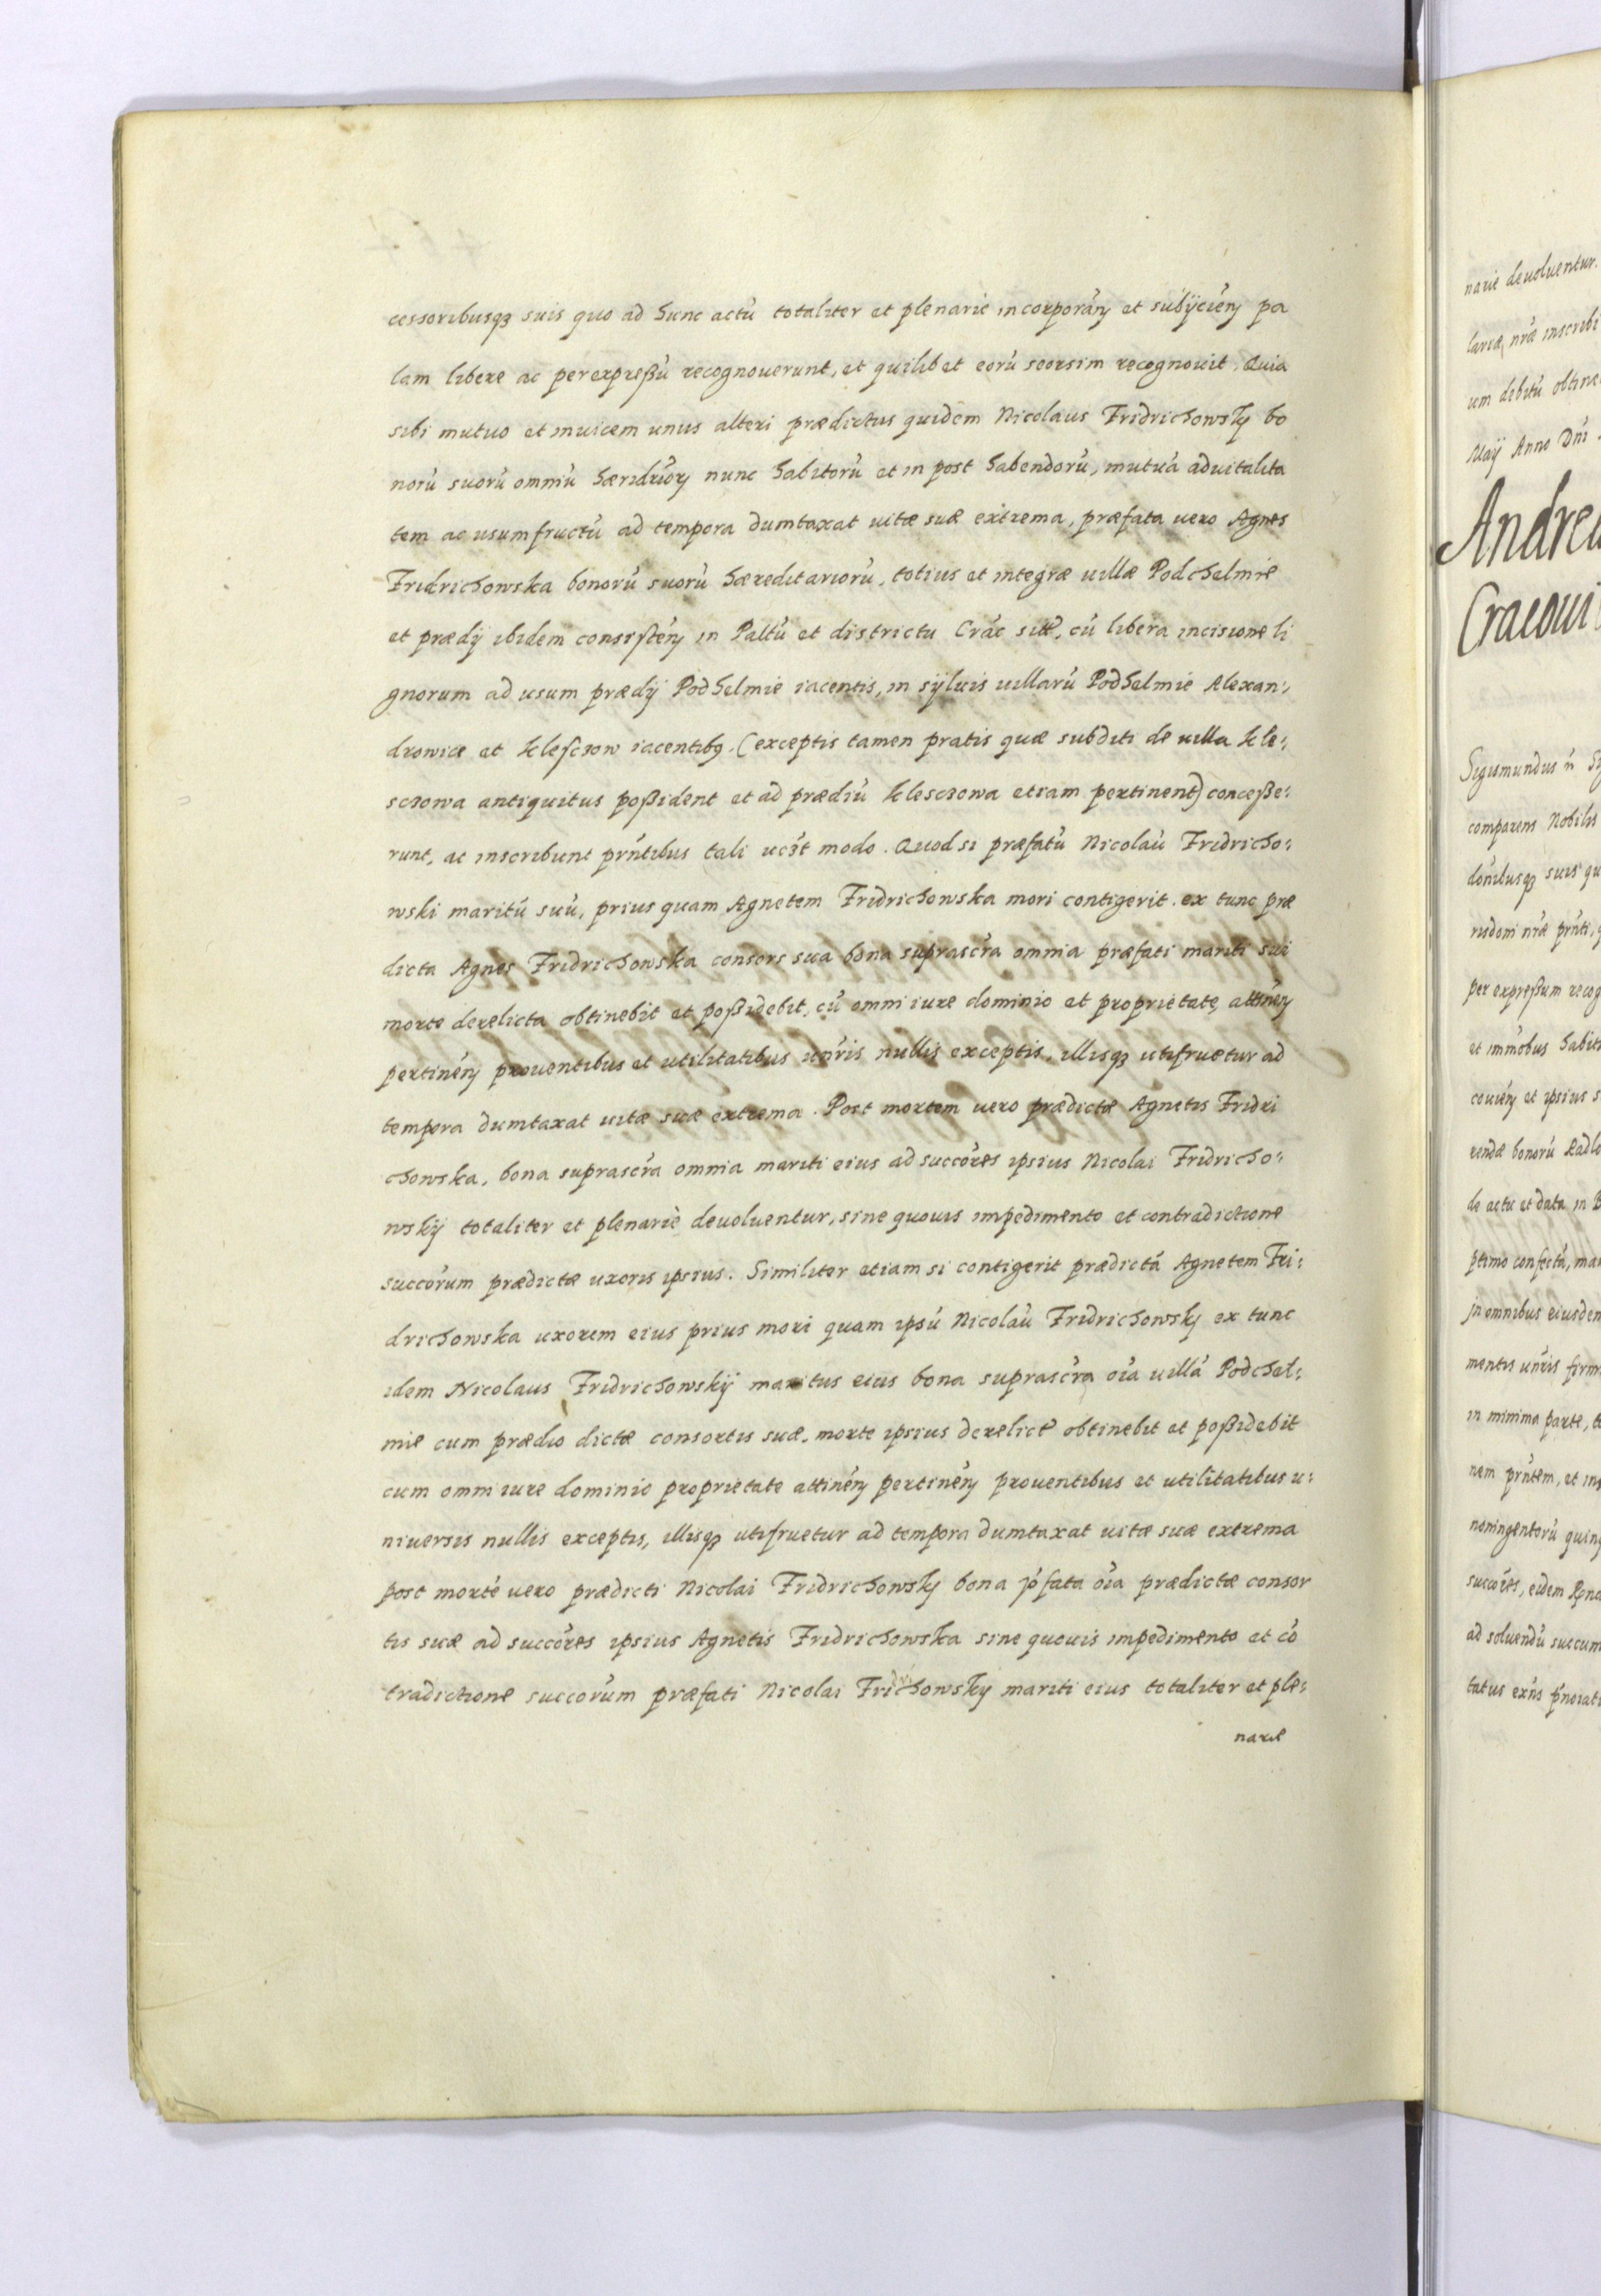 cessoribusqꝫ suis quo ad hunc actū totaliter et plenarie incorporāń et subijcień pa
lam libere ac per expreßū recognouerunt, et quilibet eorū seorsim recognouit. Quia
sibi mutuo et inuicem unus alteri prædictus quidem Nicolaus Fridrichowsky bo
norū suorū omniū hærīdrior nunc habitorū et in post habendorū, mutuā aduitalita
tem ac usumfructū ad tempora dumtaxat uitæ suæ extrema, præfata uero Agnes
Fridrichowska bonorū suorū hæreditariorū, totius et integræ uillæ Podchelmie
et prædij ibidem consisteń in Paltū et districtu Crác sitæ, cū libera incisione li
gnorum ad usum prædij Podhelmie iacentis, in syluis uillarū Podhelmie Alexan:
drowice et Kleszczow iacentibꝰ. (exceptis tamen pratis quæ subditi de uilla Kle:
sczowa antiquitus poßident et ad prædiū Klesczowa etiam pertinent) conceße:
runt, ac inscribunt prńtibus tali ucꝫt modo. Quod si præfatū Nicolaū Fridricho:
wski maritū suū, prius quam Agnetem Fridrichowska mori contigerit. ex tunc præ
dicta Agnes Fridrichowska consors sua bona suprascr̄a omnia præfati mariti sui
morte derelicta obtinebit et poßidebit, cū omni iure dominio et proprietate, attineń
pertineń prouentibus et utilitatibus uńris nullis exceptis, illisqꝫ utifruetur ad
tempora dumtaxat uitæ suæ extrema. Post mortem uero prædictæ Agnetis Fridri
chowska, bona suprascr̄a omnia mariti eius ad succōres ipsius Nicolai Fridricho:
wskij totaliter et plenariè deuoluentur, sine quouis impedimento et contradictione
succōrum prædictæ uxoris ipsius. Similiter etiam si contigerit prædictā Agnetem Fri:
drichowska uxorem eius prius mori quam ipsū Nicolaū Fridrichowsky ex tunc
idem Nicolaus Fridrichowskij maritus eius bona suprascr̄a oīa uillā Podchel:
mie cum prædio dictæ consortis suæ, morte ipsius derelictæ obtinebit et poßidebit
cum omni iure dominio proprietate attineń pertineń prouentibus et utilitatibus u:
niuersis nullis exceptis, illisqꝫ utifruetur ad tempora dumtaxat uitæ suæ extrema
post mortē uero prædicti Nicolai Fridrichowsky bona p̄fata oīa prædictæ consor
tis suæ ad succōres ipsius Agnetis Fridrichowska sine quouis impedimento et cō
tradictione succōrum præfati Nicolai Fridrichowsky mariti eius totaliter et ple:
narie
narie deuoluentur.
lariæ nr̄æ inscribi
um debitū obtine
Maij Anno Dńi
Andrea
Cracoui
Sigismundus
comparens Nobilis
dōnibusqꝫ suis qu
risdoni nr̄æ prńti,
per expreßum recog
et immōbus habit
ceuień et ipsius s
rendæ bonorū Radlo
de actu et data in B
ptimo confectā, ma
in omnibus eiusdem
mentis uńris firm
in minima parte, t
nem prńtem, et in
noningentorū quin
succōres, eidem
ad soluendū succum
tatus